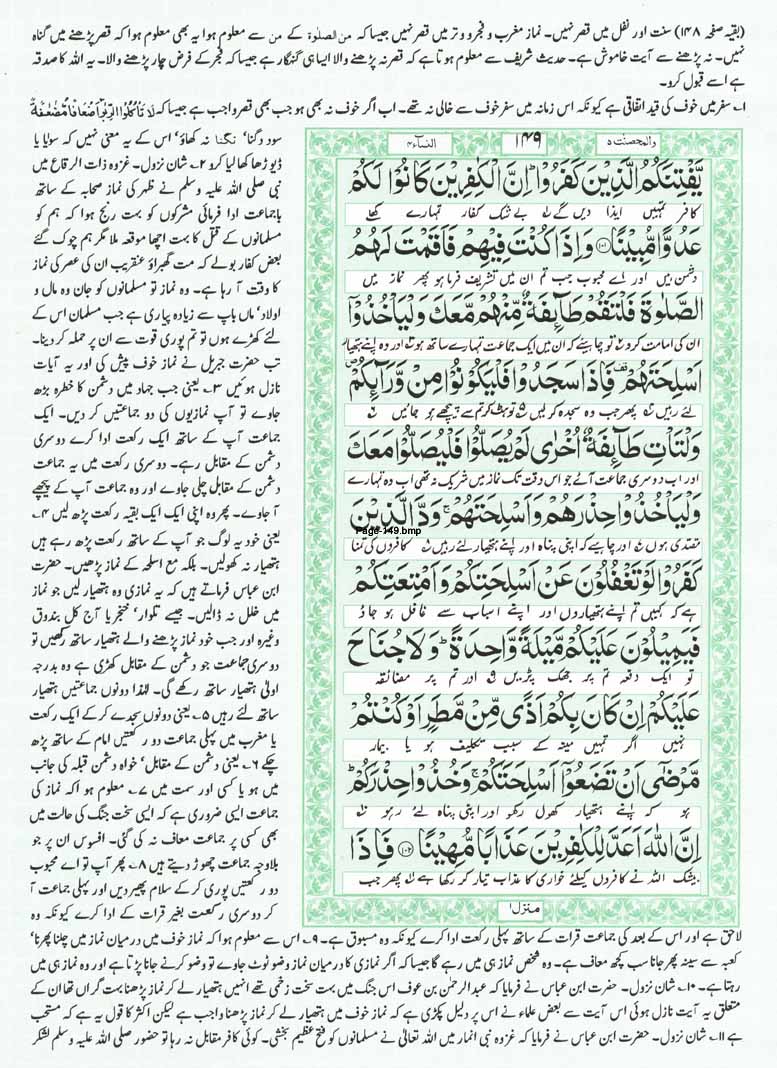 (بقیہ صفحہ ۱۴۸) سنت اور نفل میں قصر نہیں۔ نماز مغرب و فجر و وتر میں قصر نہیں جیسا کہ من الصلوٰۃ کے من سے معلوم ہوا یہ بھی معلوم ہوا کہ قصر پڑھنے میں گناہ
نہیں۔ نہ پڑھنے سے آیت خاموش ہے۔ حدیث شریف سے معلوم ہوتا ہے کہ قصر نہ پڑھنے والا ایسا ہی گنہگار ہے جیسا کہ فجر کے فرض چار پڑھنے والا۔ یہ اللہ کا صدقہ
ہے اسے قبول کرو۔
۱۔ سفر میں خوف کی قید اتفاقی ہے کیونکہ اس زمانہ میں سفر خوف سے خالی نہ تھے۔ اب اگر خوف نہ بھی ہو جب بھی قصر واجب ہے جیسا کہ لَا تَاْكُلُوا الرِّبٰۤوا اَضْعَافًا مُّضٰعَفَةً
سود دگنا، تگنا نہ کھاؤ، اس کے یہ معنی نہیں کہ سوایا یا
ڈیوڑھا کھا لیا کرو ۲۔ شان نزول۔ غزوہ ذات الرقاع میں
نبی صلی اللہ علیہ وسلم نے ظہر کی نماز صحابہ کے ساتھ
باجماعت ادا فرمائی مشرکوں کو بہت رنج ہوا کہ ہم کو
مسلمانوں کے قتل کا بہت اچھا موقعہ ملا مگر ہم چوک گئے
بعض کفار بولے کہ مت گھبراؤ عنقریب ان کی عصر کی نماز
کا وقت آ رہا ہے۔ وہ نماز تو مسلمانوں کو جان و مال و
اولاد، ماں باپ سے زیادہ پیاری ہے جب مسلمان اس کے
لئے کھڑے ہوں تو تم پوری قوت سے ان پر حملہ کر دینا۔
تب حضرت جبریل نے نماز خوف پیش کی اور یہ آیات
نازل ہوئیں ۳۔ یعنی جب جہاد میں دشمن کا خطرہ بڑھ
جاوے تو آپ نمازیوں کی دو جماعتیں کر دیں۔ ایک
جماعت آپ کے ساتھ ایک رکعت ادا کرے دوسری
دشمن کے مقابل رہے۔ دوسری رکعت میں یہ جماعت
دشمن کے مقابل چلی جاوے اور وہ جماعت آپ کے پیچھے
آ جاوے۔ پھر وہ اپنی ایک ایک بقیہ رکعت پڑھ لیں ۴۔
یعنی خود یہ لوگ جو آپ کے ساتھ رکعت پڑھ رہے ہیں
ہتھیار نہ کھولیں۔ بلکہ مع اسلحہ کے نماز پڑھیں۔ حضرت
ابن عباس فرماتے ہیں کہ یہ نمازی وہ ہتھیار لیں جو نماز
میں خلل نہ ڈالیں۔ جیسے تلوار، خنجر یا آج کل بندوق
وغیرہ اور جب خود نماز پڑھنے والے ہتھیار ساتھ رکھیں تو
دوسری جماعت جو دشمن کے مقابل کھڑی ہے وہ بدرجہ
اولیٰ ہتھیار ساتھ رکھے گی۔ لہٰذا دونوں جماعتیں ہتھیار
ساتھ لئے رہیں ۵۔ یعنی دونوں سجدے کر کے ایک رکعت
یا مغرب میں پہلی جماعت دو رکعتیں امام کے ساتھ پڑھ
چکے ۶۔ یعنی دشمن کے مقابل، خواہ دشمن قبلہ کی جانب
میں ہو یا کسی اور سمت میں ۷۔ معلوم ہوا کہ نماز کی
جماعت ایسی ضروری ہے کہ ایسی سخت جنگ کی حالت میں
بھی کسی پر جماعت معاف نہ کی گئی۔ افسوس ان پر جو
بلاوجہ جماعت چھوڑ دیتے ہیں ۸۔ پھر آپ تو اے محبوب
دو رکعتیں پوری کر کے سلام پھیر دیں اور پہلی جماعت آ
کر دوسری رکعت بغیر قرات کے ادا کرے کیونکہ وہ
والمحصنت ۵ ۱۴۹ النسآء ۴
يَّفْتِنَكُمُ الَّذِيْنَ كَفَرُوْا ؕ اِنَّ الْكٰفِرِيْنَ كَانُوْا لَكُمْ
کافر تمہیں ایذا دیں گے بے شک کفار تمہارے کھلے
عَدُوًّا مُّبِيْنًا ۝۱۰۱ وَ اِذَا كُنْتَ فِيْهِمْ فَاَقَمْتَ لَهُمُ
دشمن ہیں اور اے محبوب جب تم ان میں تشریف فرما ہو پھر نماز میں
الصَّلٰوةَ فَلْتَقُمْ طَآىِٕفَةٌ مِّنْهُمْ مَّعَكَ وَ لْيَاْخُذُوْۤا
ان کی امامت کرو تو چاہیئے کہ ان میں ایک جماعت تمہارے ساتھ ہو اور وہ اپنے ہتھیار
اَسْلِحَتَهُمْ ۫ فَاِذَا سَجَدُوْا فَلْيَكُوْنُوْا مِنْ وَّرَآىِٕكُمْ ۪
لئے رہیں پھر جب وہ سجدہ کر لیں تو ہٹ کر تم سے پیچھے ہو جائیں
وَ لْتَاْتِ طَآىِٕفَةٌ اُخْرٰى لَمْ يُصَلُّوْا فَلْيُصَلُّوْا مَعَكَ
اور اب دوسری جماعت آئے جو اس وقت تک نماز میں شریک نہ تھی اب وہ تمہارے
وَ لْيَاْخُذُوْا حِذْرَهُمْ وَ اَسْلِحَتَهُمْ ۚ وَدَّ الَّذِيْنَ
Page-149.bmp
مقتدی ہوں اور چاہیے کہ اپنی پناہ اور اپنے ہتھیار لئے رہیں کافروں کی تمنا
كَفَرُوْا لَوْ تَغْفُلُوْنَ عَنْ اَسْلِحَتِكُمْ وَ اَمْتِعَتِكُمْ
ہے کہ کہیں تم اپنے ہتھیاروں اور اپنے اسباب سے غافل ہو جاؤ
فَيَمِيْلُوْنَ عَلَيْكُمْ مَّيْلَةً وَّاحِدَةً ؕ وَ لَا جُنَاحَ
تو ایک دفعہ تم پر جھک پڑیں اور تم پر مضائقہ
عَلَيْكُمْ اِنْ كَانَ بِكُمْ اَذًى مِّنْ مَّطَرٍ اَوْ كُنْتُمْ
نہیں اگر تمہیں مینہ کے سبب تکلیف ہو یا بیمار
مَّرْضٰۤى اَنْ تَضَعُوْۤا اَسْلِحَتَكُمْ ۚ وَ خُذُوْا حِذْرَكُمْ ؕ
ہو کہ اپنے ہتھیار کھول رکھو اور اپنی پناہ لئے رہو
اِنَّ اللّٰهَ اَعَدَّ لِلْكٰفِرِيْنَ عَذَابًا مُّهِيْنًا ۝۱۰۲ فَاِذَا
بیشک اللہ نے کافروں کیلئے خواری کا عذاب تیار کر رکھا ہے پھر جب
منزل ۱
لاحق ہے اور اس کے بعد کی جماعت قرات کے ساتھ پہلی رکعت ادا کرے کیونکہ وہ مسبوق ہے۔ ۹۔ اس سے معلوم ہوا کہ نماز خوف میں درمیان نماز میں چلنا پھرنا،
کعبہ سے سینہ پھر جانا سب کچھ معاف ہے۔ وہ شخص نماز ہی میں رہے گا جیسا کہ اگر نمازی کا درمیان نماز وضو ٹوٹ جاوے تو وضو کرنے جانا پڑتا ہے اور وہ نماز ہی میں
رہتا ہے۔ ۱۰۔ شان نزول۔ حضرت ابن عباس نے فرمایا کہ عبدالرحمٰن بن عوف اس جنگ میں بہت سخت زخمی تھے انہیں ہتھیار لے کر نماز پڑھنا بہت گراں تھا ان کے
متعلق یہ آیت نازل ہوئی اس آیت سے بعض علماء نے اس پر دلیل پکڑی ہے کہ نماز خوف میں ہتھیار لے کر نماز پڑھنا واجب ہے لیکن اکثر کا قول یہ ہے کہ مستحب
ہے ۱۱۔ شان نزول۔ حضرت ابن عباس نے فرمایا کہ غزوہ نبی انمار میں اللہ تعالیٰ نے مسلمانوں کو فتح عظیم بخشی۔ کوئی کافر مقابل نہ رہا تو حضور صلی اللہ علیہ وسلم لشکر